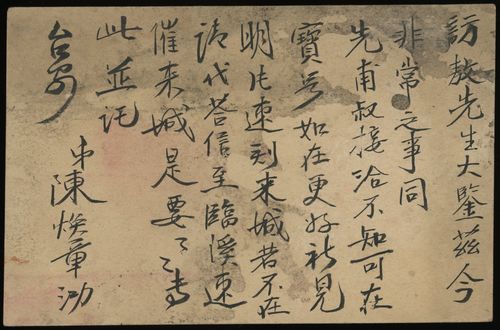 訪敖先生大鑒茲今
非常之事同
先甫叔接洽不知可在
寶号如在更好祈見
明片速刻来城若不在
請代荅信至臨溪速
催来城是要了专
此並託
台安
弟陳煥章